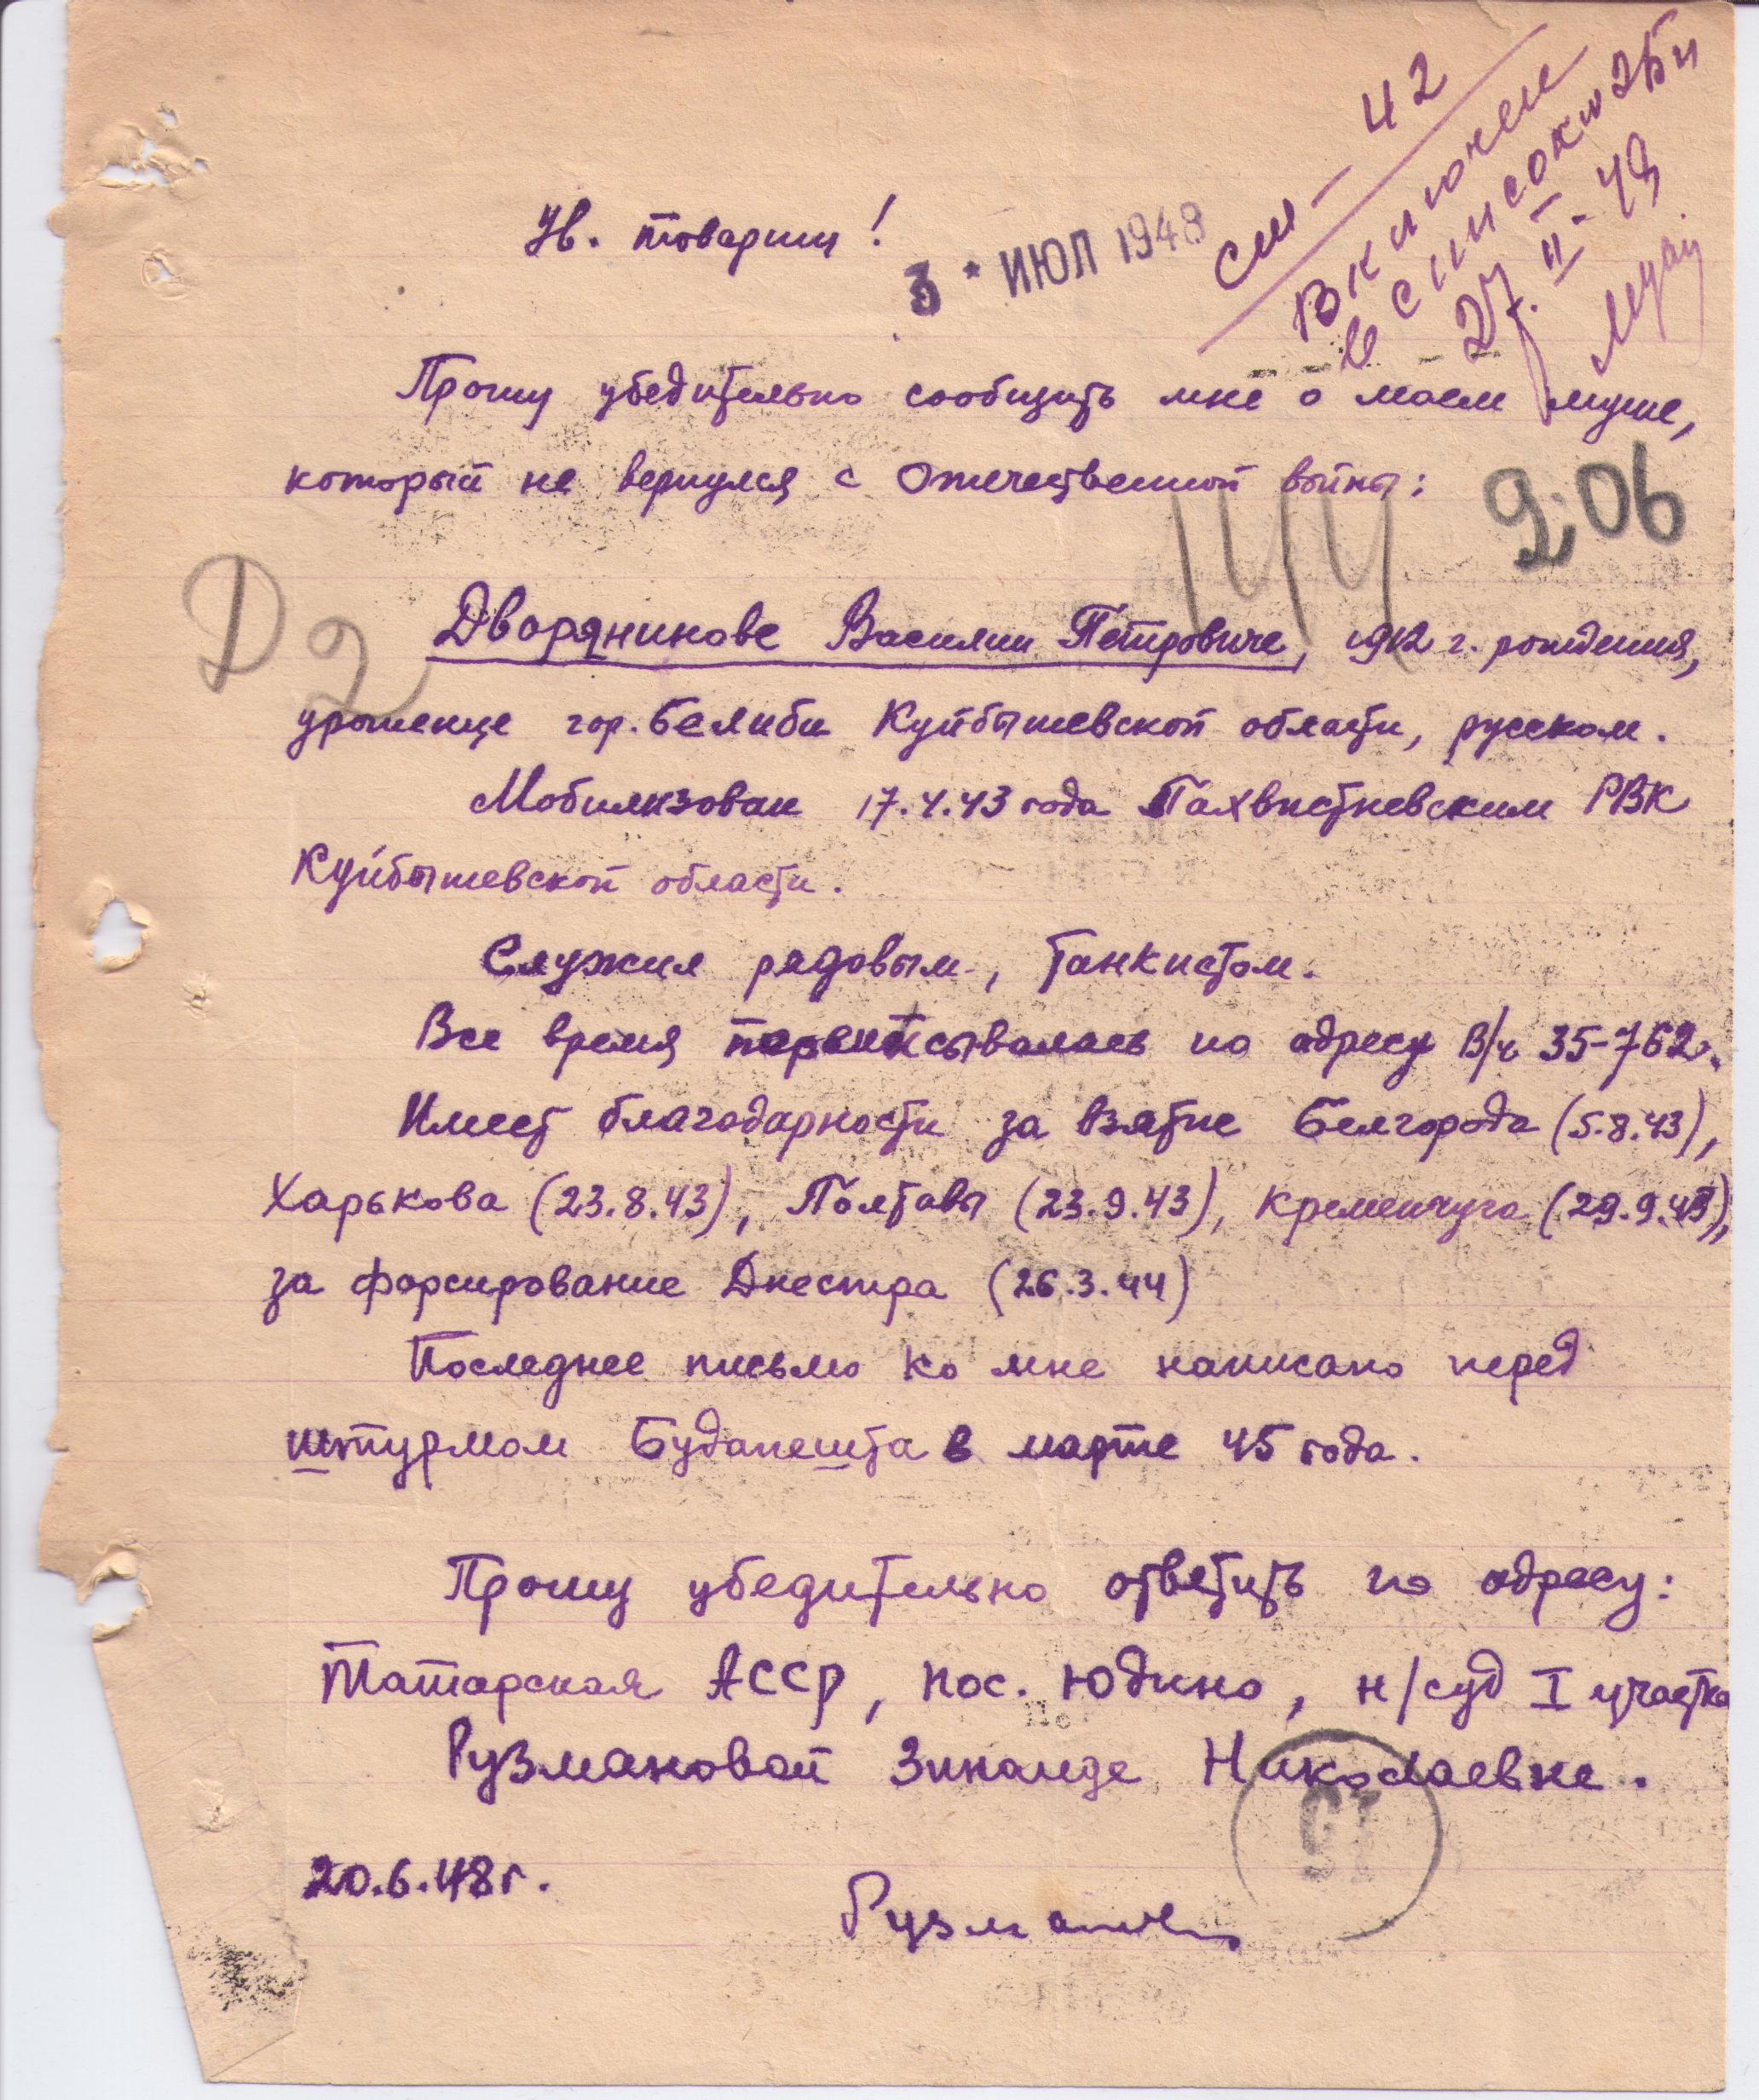 см – 42
Включен
в список 2Би
27. II – 49
Ув. товарищ!
3 * ИЮЛ 1948
Прошу убедительно сообщить мне о моем муже,
который не вернулся с Отечественной войны:
206
Д2
Дворяникове Василии Петровиче, 1912 г. рождения,
уроженце гор. Белиби Куйбышевской области, русском.
Мобилизован 17.4.43 года Пахвистневским РВК
Куйбышевской области.
Служил рядовым, танкистом.
Все время переписывалась по адресу В/ч 35-762.
Имеет благодарности за взятие Белгорода (5.8.43),
Харькова (23.8.43), Полтавы (23.9.43), Кременчуга (29.9.43),
за форсирование Днестра (26.3.44)
Последнее письмо ко мне написано перед
штурмом Будапешта в марте 45 года.
Прошу убедительно ответить по адресу:
Татарская АССР, пос. Юдино, н/суд I участка
Рузмановой Зинаиде Николаевне.
20.6.48 г.